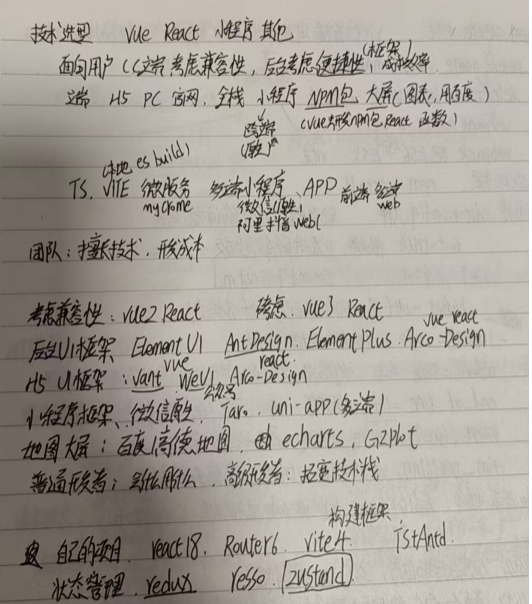 技术选型 Vue React 小程序 其他
面向用户 C端 考虑兼容性，后台考虑便捷性，(框架) 成效率
端 H5 PC 官网 全栈 小程序 NPM包 大屏(图表,用百度)
跨端 (Vue大部分npm包 React 函数)
(原生)
(本地 es build)
TS. VITE 微服务 多端小程序、APP 前端 多端
微信原生, web
阿里 抖音 web(
团队：擅长技术、开发成本
考虑兼容性：vue2 React 考虑. vue3 React
vue react
后台UI框架 Element UI AntDesign. Element Plus. Arco-Design
vue react.
H5 UI框架：vant WeUI Arco-Design
公众号
小程序框架、微信原生. Taro. uni-app(多端)
地图大屏：百度/高德地图. echarts, G2plot
普通开发者：会什么用什么. 高级开发者：拓宽技术栈
构建框架
自己的项目. react18. Router6. vite4. TstAntd.
状态管理. redux resso. zustand